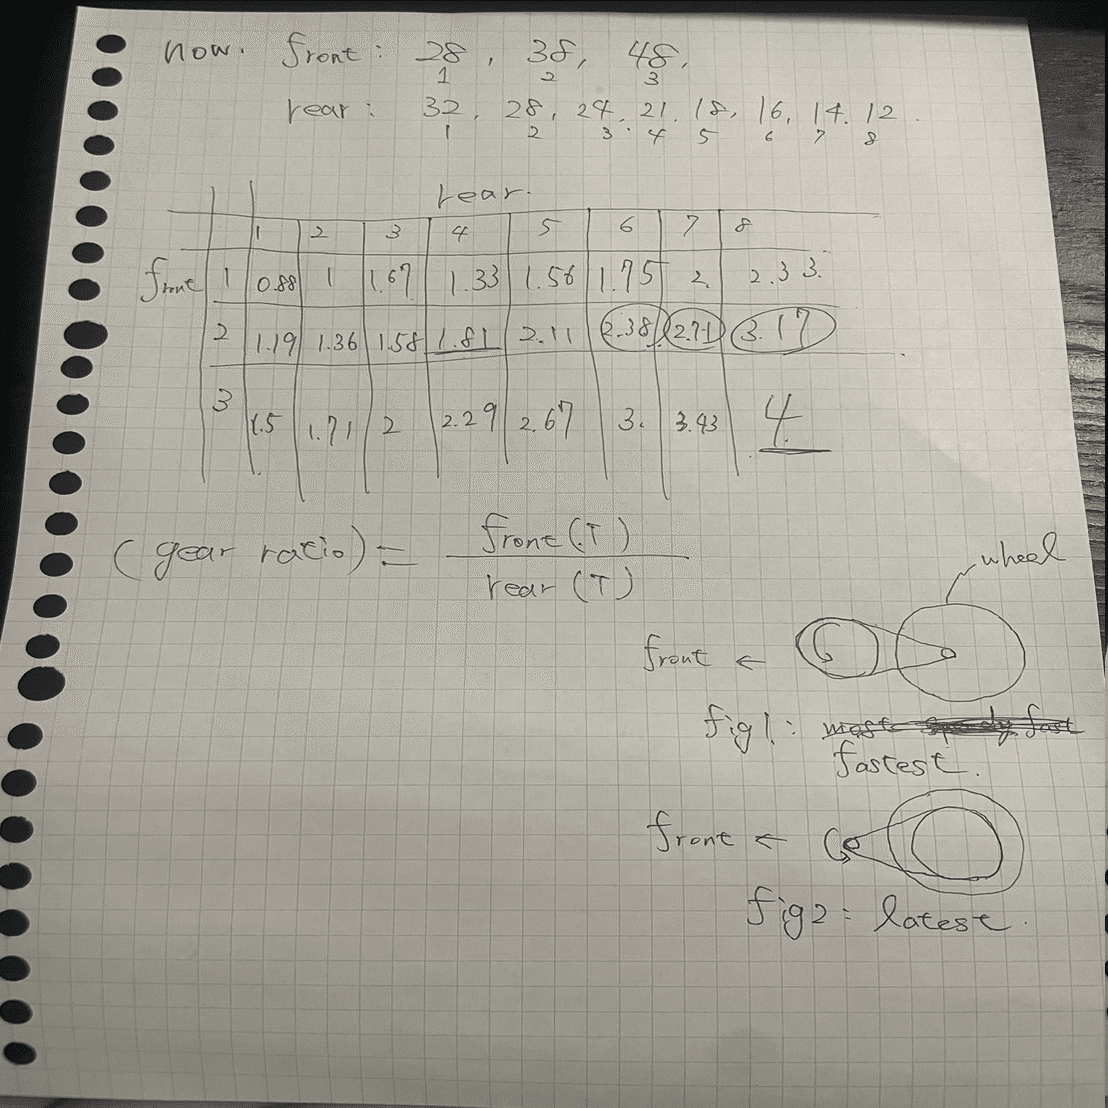 now. front: 28, 38, 48,
1 2 3
rear: 32, 28, 24, 21. 18, 16, 14. 12
1 2 3. 4 5 6 7 8
rear.
1 2 3 4 5 6 7 8
front 1 0.88 1 1.67 1.33 1.56 1.75 2. 2.33.
2 1.19 1.36 1.58 1.81 2.11 2.38 2.71 3.17
3 1.5 1.71 2 2.29 2.67 3. 3.43 4.
(gear ratio) = front(T)
rear (T)
wheel
front ←
fig1: most speedy fast
fastest.
front ←
fig2: latest.